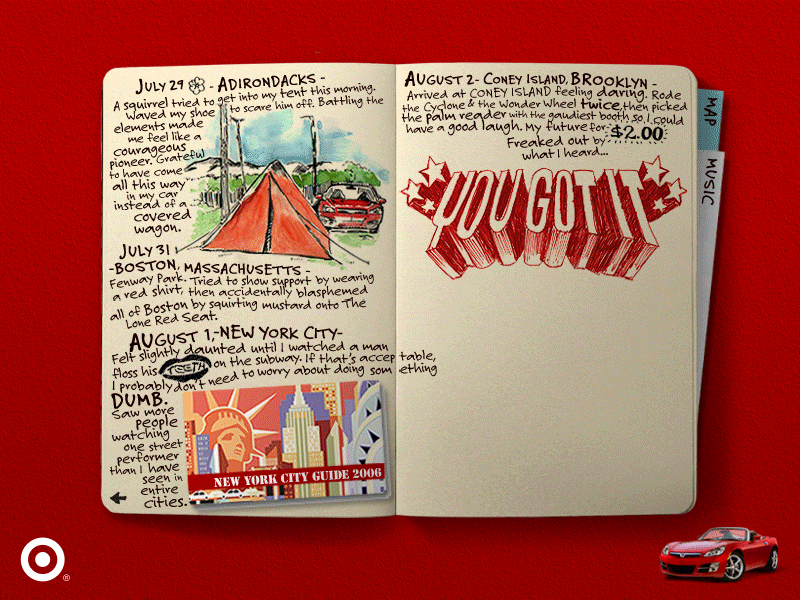 JULY 29 - ADIRONDACKS -
A squirrel tried to get into my tent this morning.
Waved my shoe to scare him off. Battling the
elements made
me feel like a
courageous
pioneer. Grateful
to have come
all this way
in my car
instead of a
covered
wagon.
JULY 31
-BOSTON, MASSACHUSETTS -
Fenway Park. Tried to show support by wearing
a red shirt, then accidentally blasphemed
all of Boston by squirting mustard onto The
Lone Red Seat.
AUGUST 1,-NEW YORK CITY-
Felt slightly daunted until I watched a man
floss his TEETH on the subway. If that's acceptable,
I probably don't need to worry about doing something
DUMB.
Saw more
people
watching
one street
performer
than I have
seen in
entire
cities.
NEW YORK CITY GUIDE 2006
AUGUST 2- CONEY ISLAND, BROOKLYN -
Arrived at CONEY ISLAND feeling daring. Rode
the Cyclone & the Wonder Wheel twice, then picked
the palm reader with the gaudiest booth so I could
have a good laugh. My future for $2.00
Freaked out by
what I heard...
YOU GOT IT
MAP
MUSIC
®